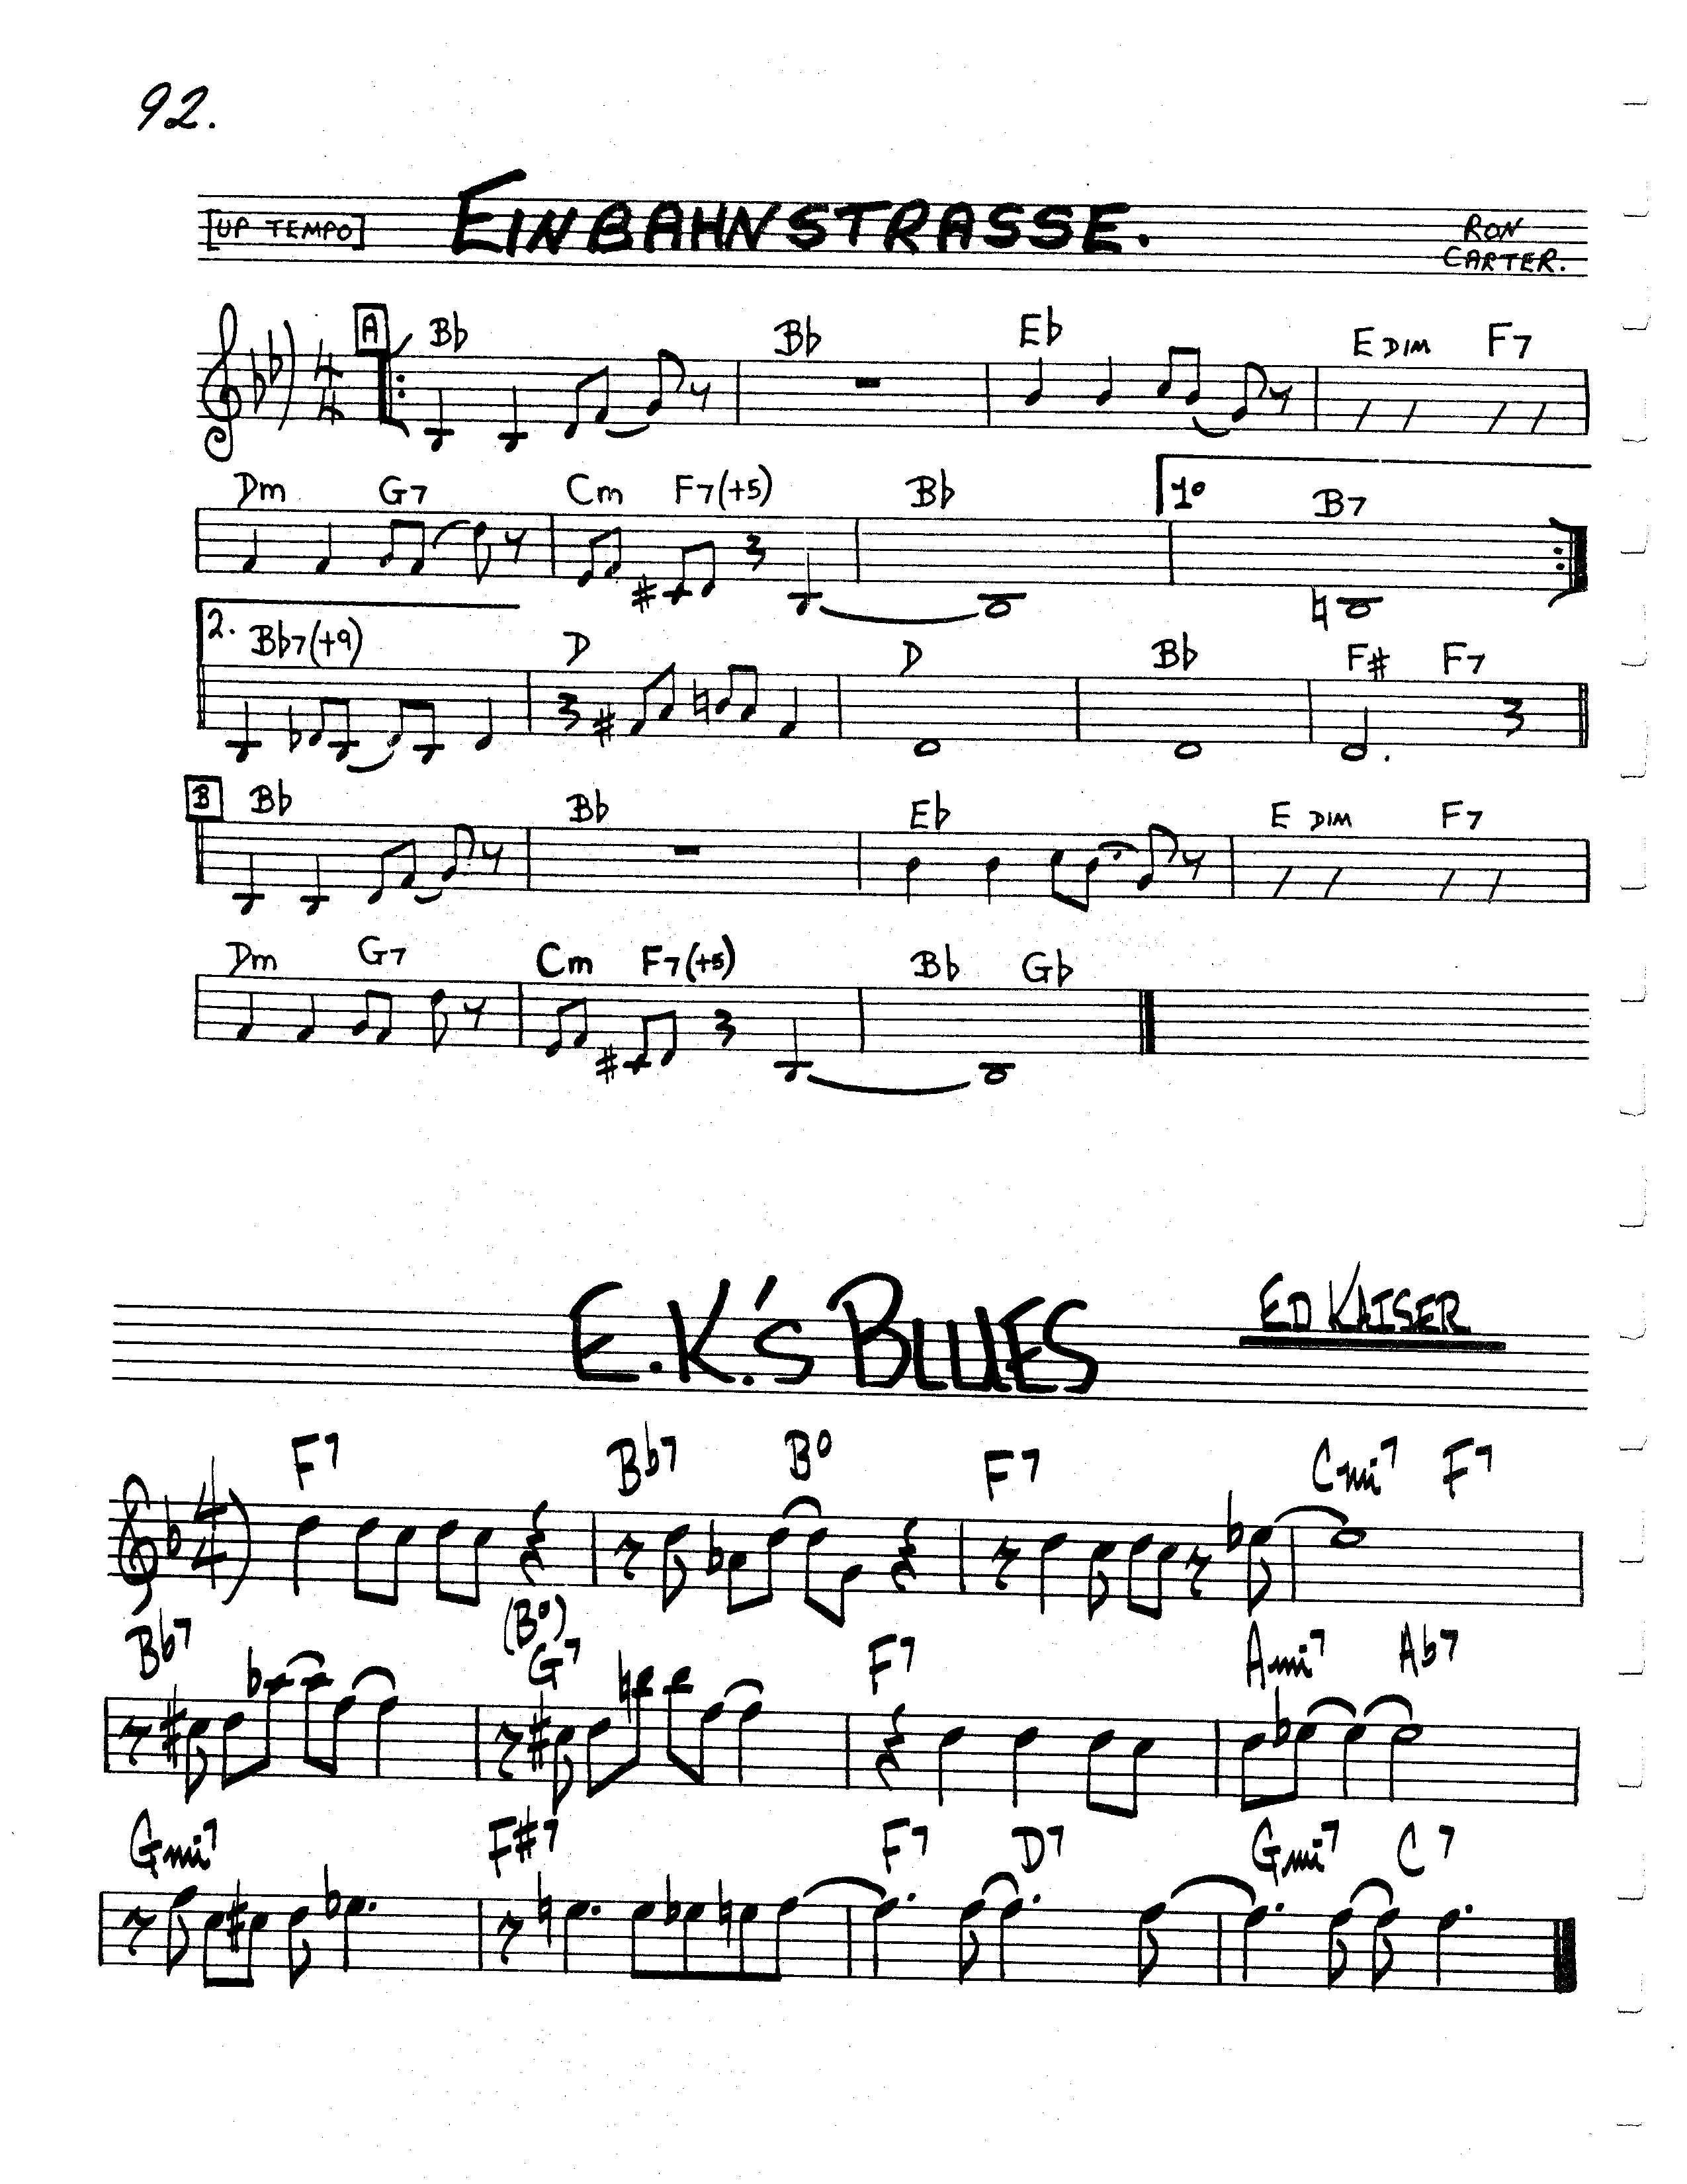 92.
[UP TEMPO] EINBAHNSTRASSE. RON CARTER.
A B♭ B♭ E♭ E DIM F7
4/4
Dm G7 Cm F7(+5) B♭ 1º B7
2. B♭7(+9) D D B♭ F# F7
B B♭ B♭ E♭ E DIM F7
Dm G7 Cm F7(+5) B♭ G♭
E.K.'s BLUES ED KAISER
F7 B♭7 Bº F7 Cmi7 F7
4/4
B♭7 (Bº) G7 F7 Ami7 A♭7
Gmi7 F#7 F7 D7 Gmi7 C7